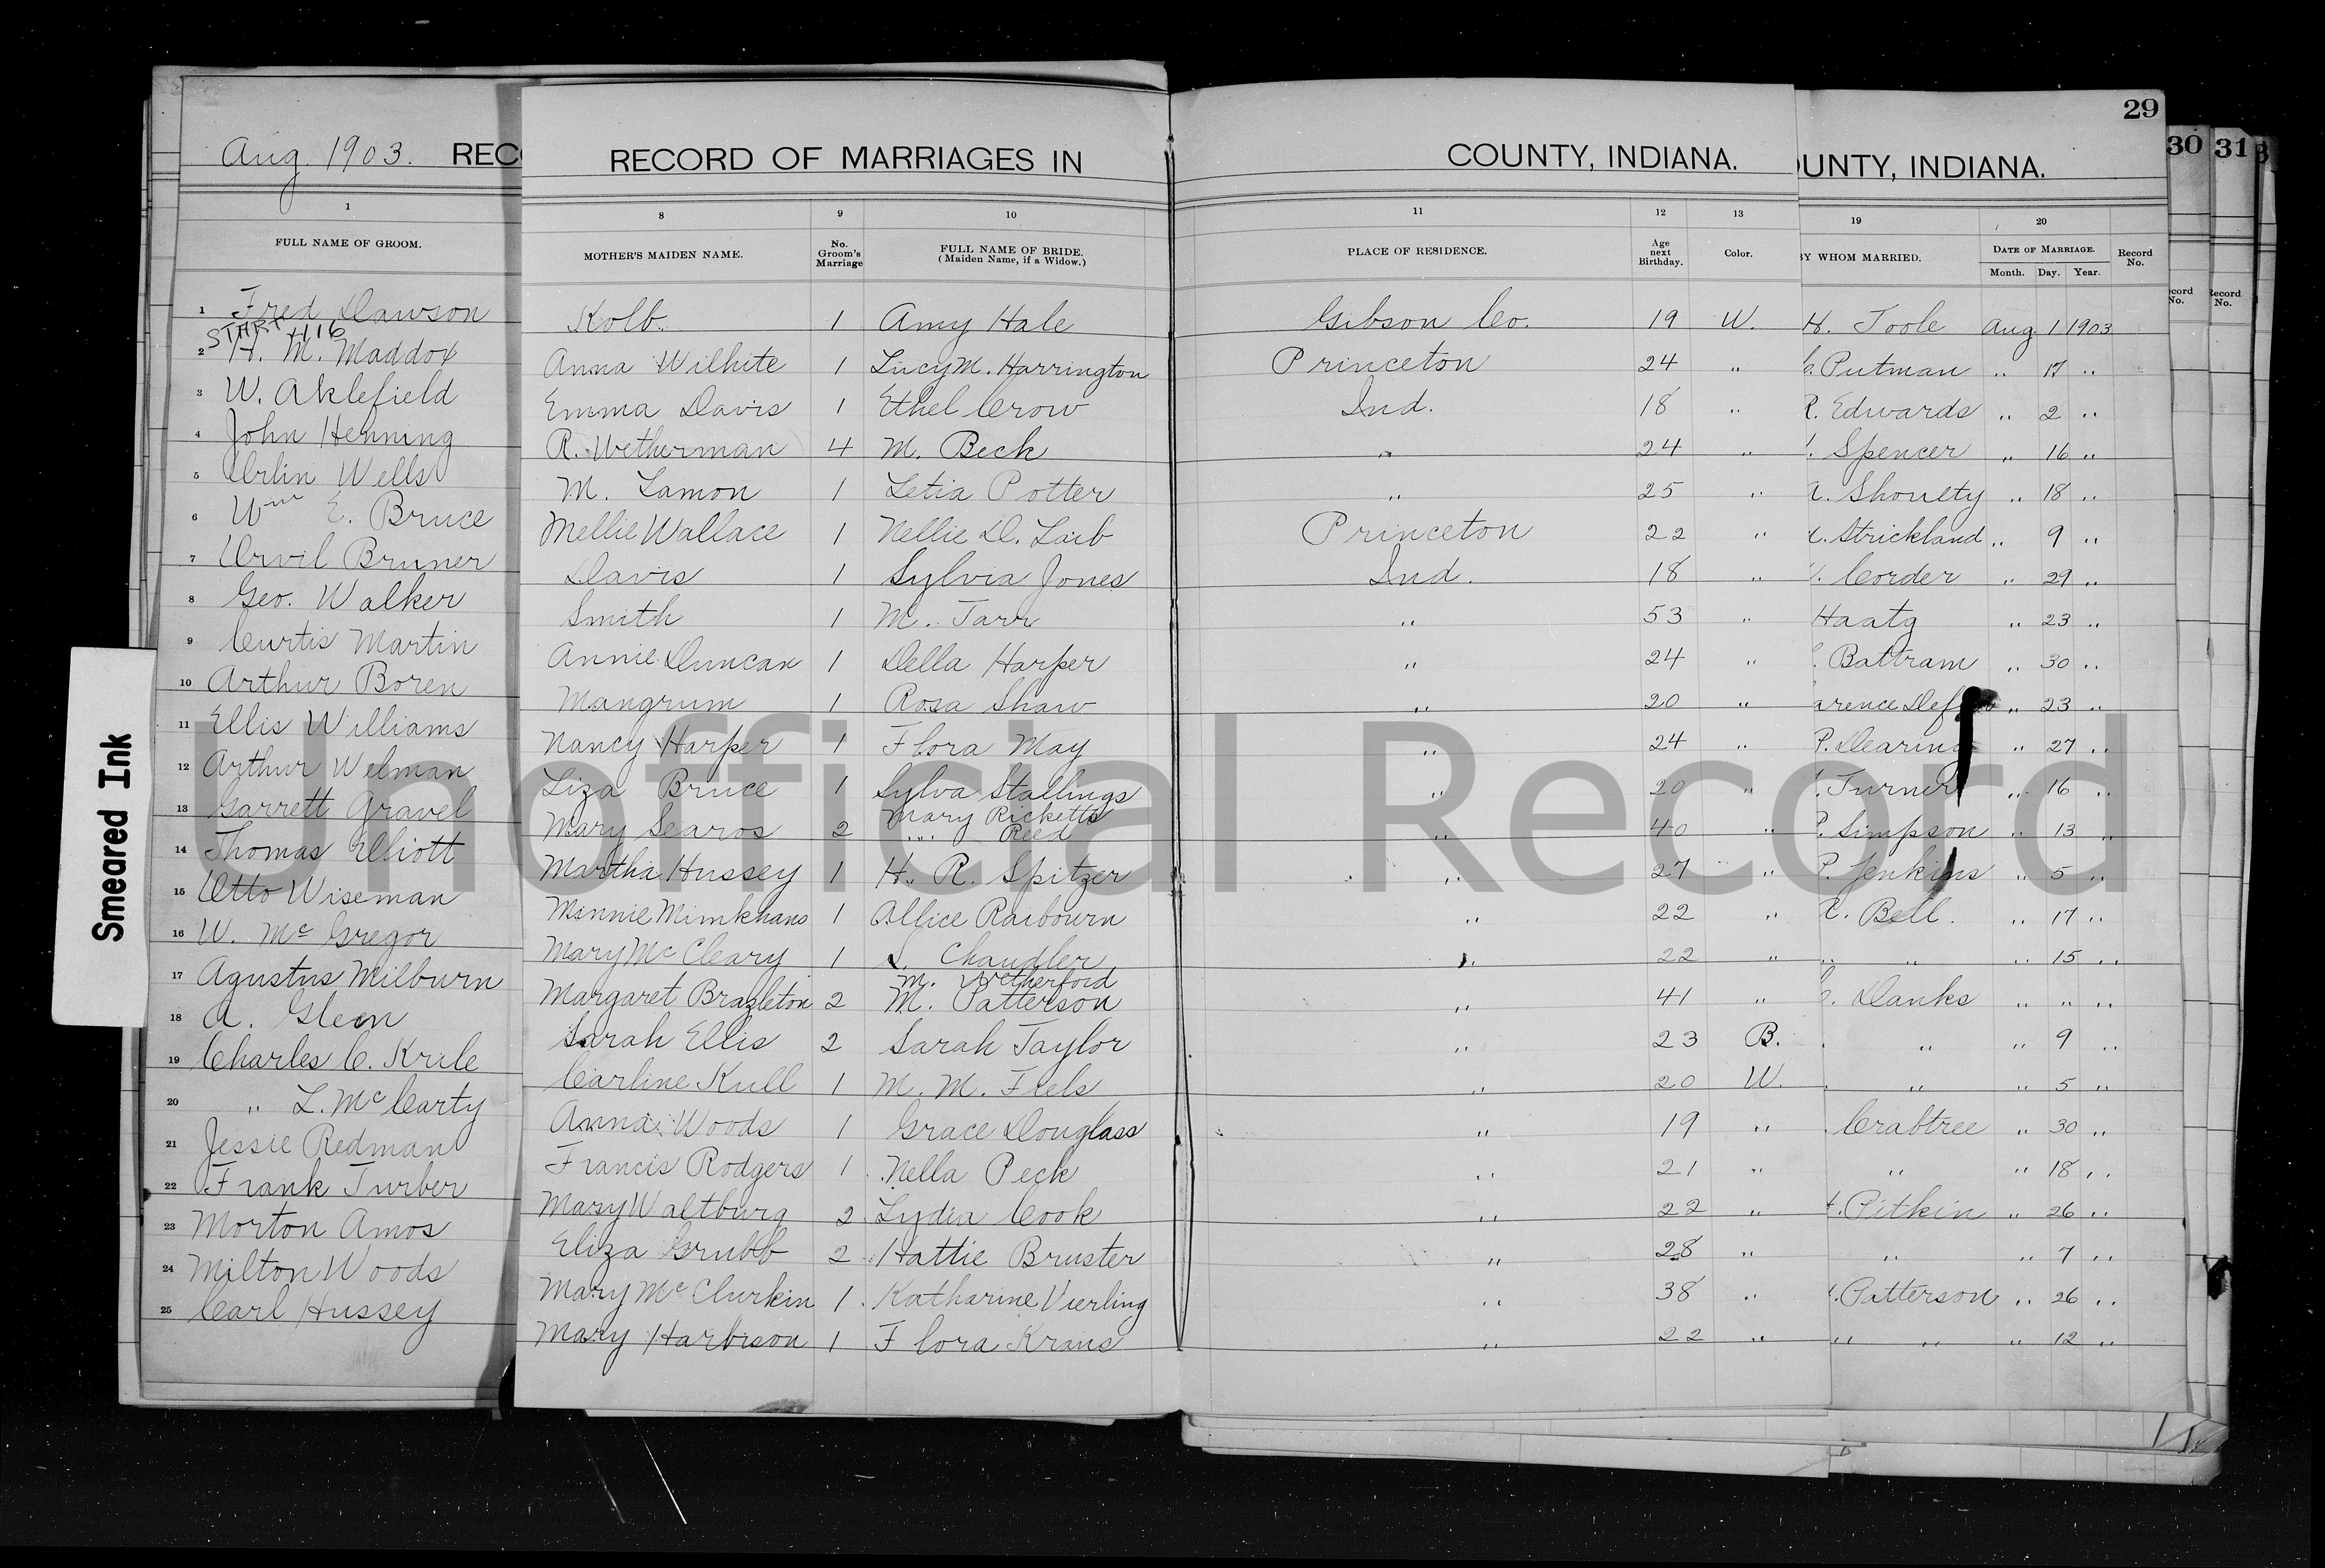 29
30 31 3
Aug. 1903. REC RECORD OF MARRIAGES IN COUNTY, INDIANA. OUNTY, INDIANA.
1 8 9 10 11 12 13 19 20
FULL NAME OF GROOM. MOTHER'S MAIDEN NAME. No. Groom's Marriage FULL NAME OF BRIDE. (Maiden Name, if a Widow.) PLACE OF RESIDENCE. Age next Birthday. Color. BY WHOM MARRIED. DATE OF MARRIAGE. Month. Day. Year. Record No.
ecord No. Record No.
1 Fred Dawson Kolb 1 Amy Hale Gibson Co. 19 W. H. Toole Aug. 1 1903
START 116
2 H. M. Maddox Anna Wilhite 1 Lucy M. Harrington Princeton 24 " C. Putman " 17 "
3 W. Aklefield Emma Davis 1 Ethel Crow Ind. 18 " R. Edwards " 2 "
4 John Henning R. Wetherman 4 M. Beck " 24 " . Spencer " 16 "
5 Orlin Wells M. Lamon 1 Letia Potter " 25 " . Shoulty " 18 "
6 Wm E. Bruce Mellie Wallace 1 Nellie D. Laib Princeton 22 " . Strickland " 9 "
7 Orvil Bruner Davis 1 Sylvia Jones Ind. 18 " . Corder " 29 "
8 Geo. Walker Smith 1 M. Tarr " 53 " Haatg " 23 "
9 Curtis Martin Annie Duncan 1 Della Harper " 24 " . Battram " 30 "
10 Arthur Boren Mangrum 1 Rosa Shaw " 20 " arence Def " 23 "
11 Ellis Williams Nancy Harper 1 Flora May " 24 " P. Dearing " 27 "
12 Arthur Welman Liza Bruce 1 Sylva Stallings " 20 " . Turner " 16 "
13 Garrett Gravel Mary Searos 2 Mary Ricketts " Reed " 40 " P. Simpson " 13 "
14 Thomas Elliott Martha Hussey 1 H. R. Spitzer " 27 " P. Jenkins " 5 "
15 Otto Wiseman Minnie Mimkhaus 1 Allice Raibourn " 22 " . Bell. " 17 "
16 W. Mc Gregor Mary Mc Cleary 1 S. Chandler " 22 " " " 15 "
17 Agustus Milburn Margaret Brazleton 2 M. Wetherford M. Patterson " 41 " . Danks " " "
18 A. Gleen Sarah Ellis 2 Sarah Taylor " 23 B. " " 9 "
19 Charles C. Krule Carline Kull 1 M. M. Fiels " 20 W. " " 5 "
20 " L. Mc Carty Anna Woods 1 Grace Douglass " 19 " . Crabtree " 30 "
21 Jessie Redman Francis Rodgers 1 Nella Peck " 21 " " " 18 "
22 Frank Turber Mary Waltburg 2 Lydia Cook " 22 " . Pitkin " 26 "
23 Morton Amos Eliza Grubb 2 Hattie Bruster " 28 " " " 7 "
24 Milton Woods Mary Mc Clurkin 1 Katharine Vierling " 38 " . Patterson " 26 "
25 Carl Hussey Mary Harbison 1 Flora Kraus " 22 " " " " 12 "
Smeared Ink
Unofficial Record